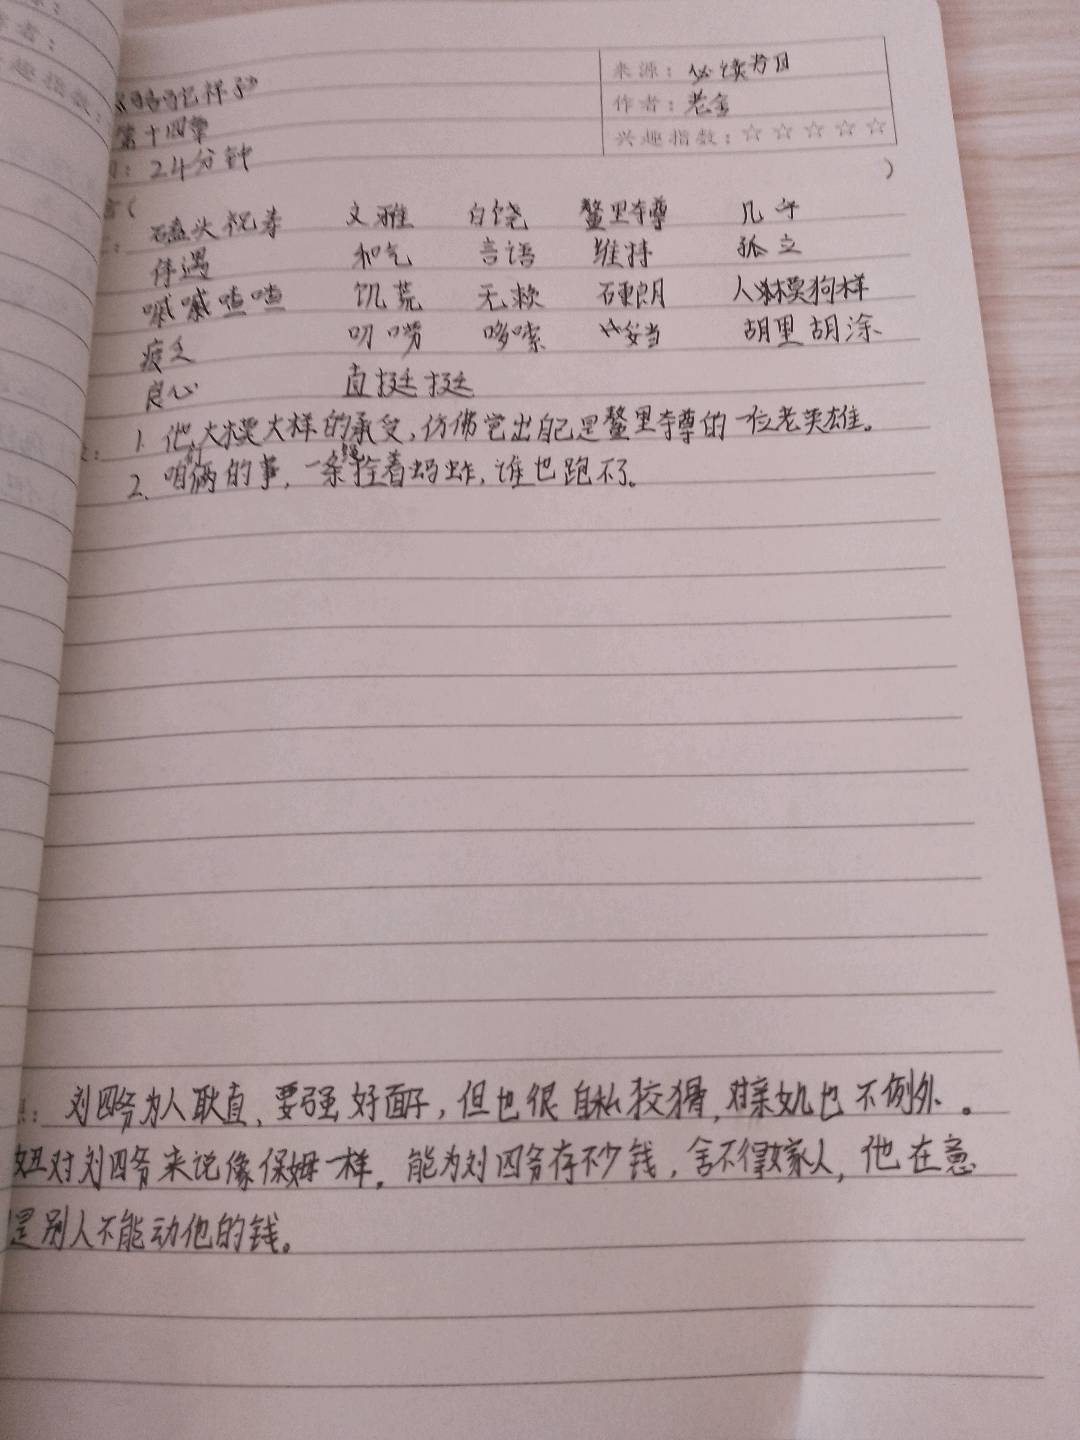 《骆驼祥子》
来源：必读书目
第十四章
作者：老舍
兴趣指数：☆☆☆☆☆
：24分钟
（ ）
磕头祝寿 文雅 白饶 鳌里夺尊 几乎
待遇 和气 言语 维持 孤立
嘁嘁喳喳 饥荒 无赖 硬朗 人模狗样
疲乏 叨唠 哆嗦 妥当 胡里胡涂
良心 直挺挺
1. 他大模大样的承受，仿佛觉出自己是鳌里夺尊的一位老英雄。
2. 咱们俩的事，一条绳拴着蚂蚱，谁也跑不了。
：刘四爷为人耿直、要强好面子，但也很自私狡猾，对亲女儿也不例外。
妞对刘四爷来说像保姆一样。能为刘四爷存不少钱，舍不得嫁人，他在意
是别人不能动他的钱。